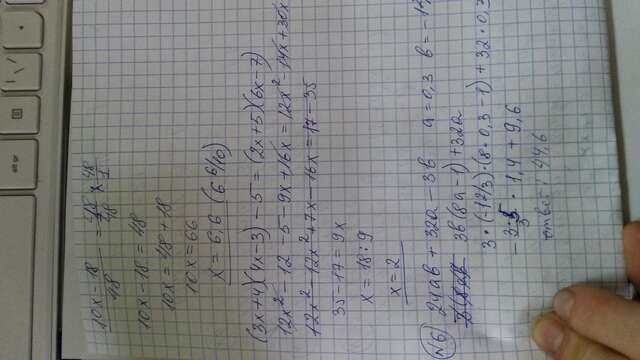 10x - 18 / 48 = 48 / 48 × 48 / 1
10x - 18 = 48
10x = 48 + 18
10x = 66
x = 6,6 (6 6/10)
(3x+4)(4x-3) - 5 = (2x+5)(6x-7)
12x² - 12 - 5 - 9x + 16x = 12x² - 14x + 30x
12x² - 12x² + 7x - 16x = 17 - 35
35 - 17 = 9x
x = 18 : 9
x = 2
№6 24ab + 32a - 3b a = 0,3 b = -1
3b(8a-1) + 32a
3·(-1 2/3)·(8·0,3-1) + 32·0,3
- 3·5 / 3 · 1,4 + 9,6
ответ: 44,6